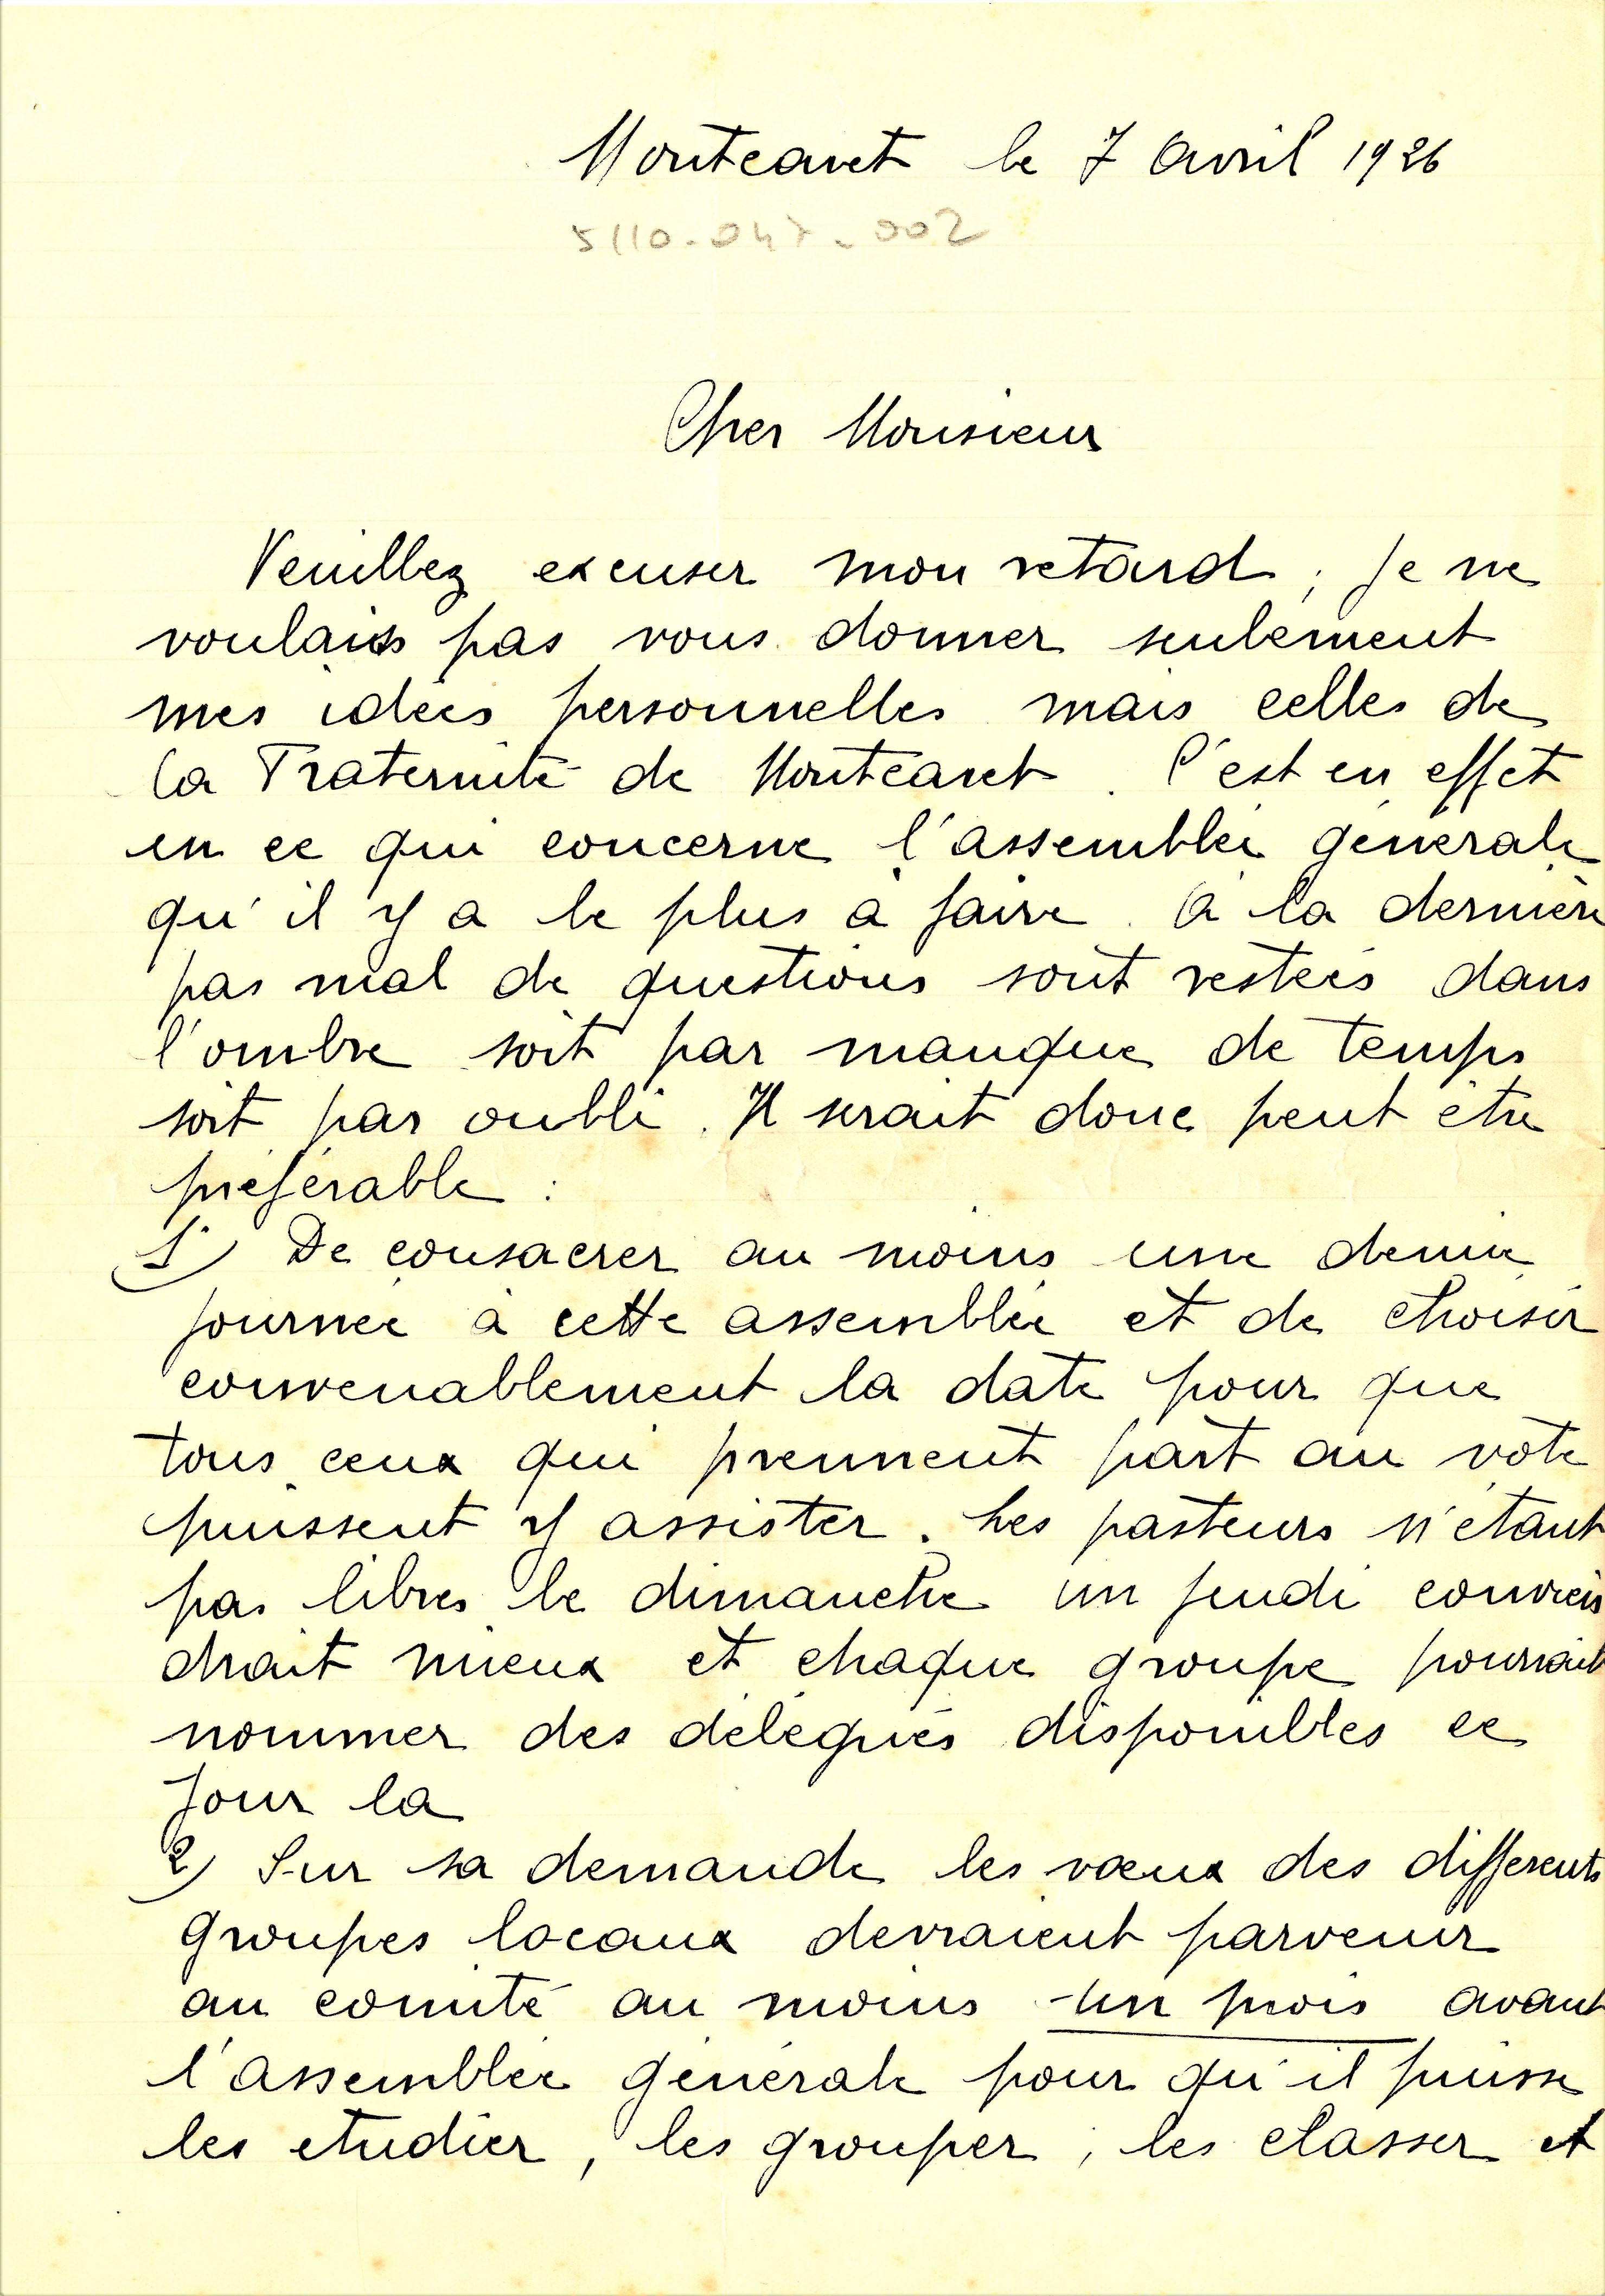 Montcaret le 7 Avril 1926
5110.047.002
Cher Monsieur
Veuillez excuser mon retard ; je ne
voulais pas vous donner seulement
mes idées personnelles mais celles de
la Fraternité de Montcaret. C'est en effet
en ce qui concerne l'assemblée générale
qu'il y a le plus à faire. A la dernière
pas mal de questions sont restées dans
l'ombre soit par manque de temps
soit par oubli. Il serait donc peut être
préférable :
1°) De consacrer au moins une demie
journée à cette assemblée et de choisir
convenablement la date pour que
tous ceux qui prennent part au vote
puissent y assister. Les pasteurs n'étant
pas libres le dimanche un jeudi convien
drait mieux et chaque groupe pourrait
nommer des délégués disponibles ce
jour la
2) Sur sa demande les vœux des différents
groupes locaux devraient parvenir
au comité au moins un mois avant
l'assemblée générale pour qu'il puisse
les etudier, les grouper, les classer et